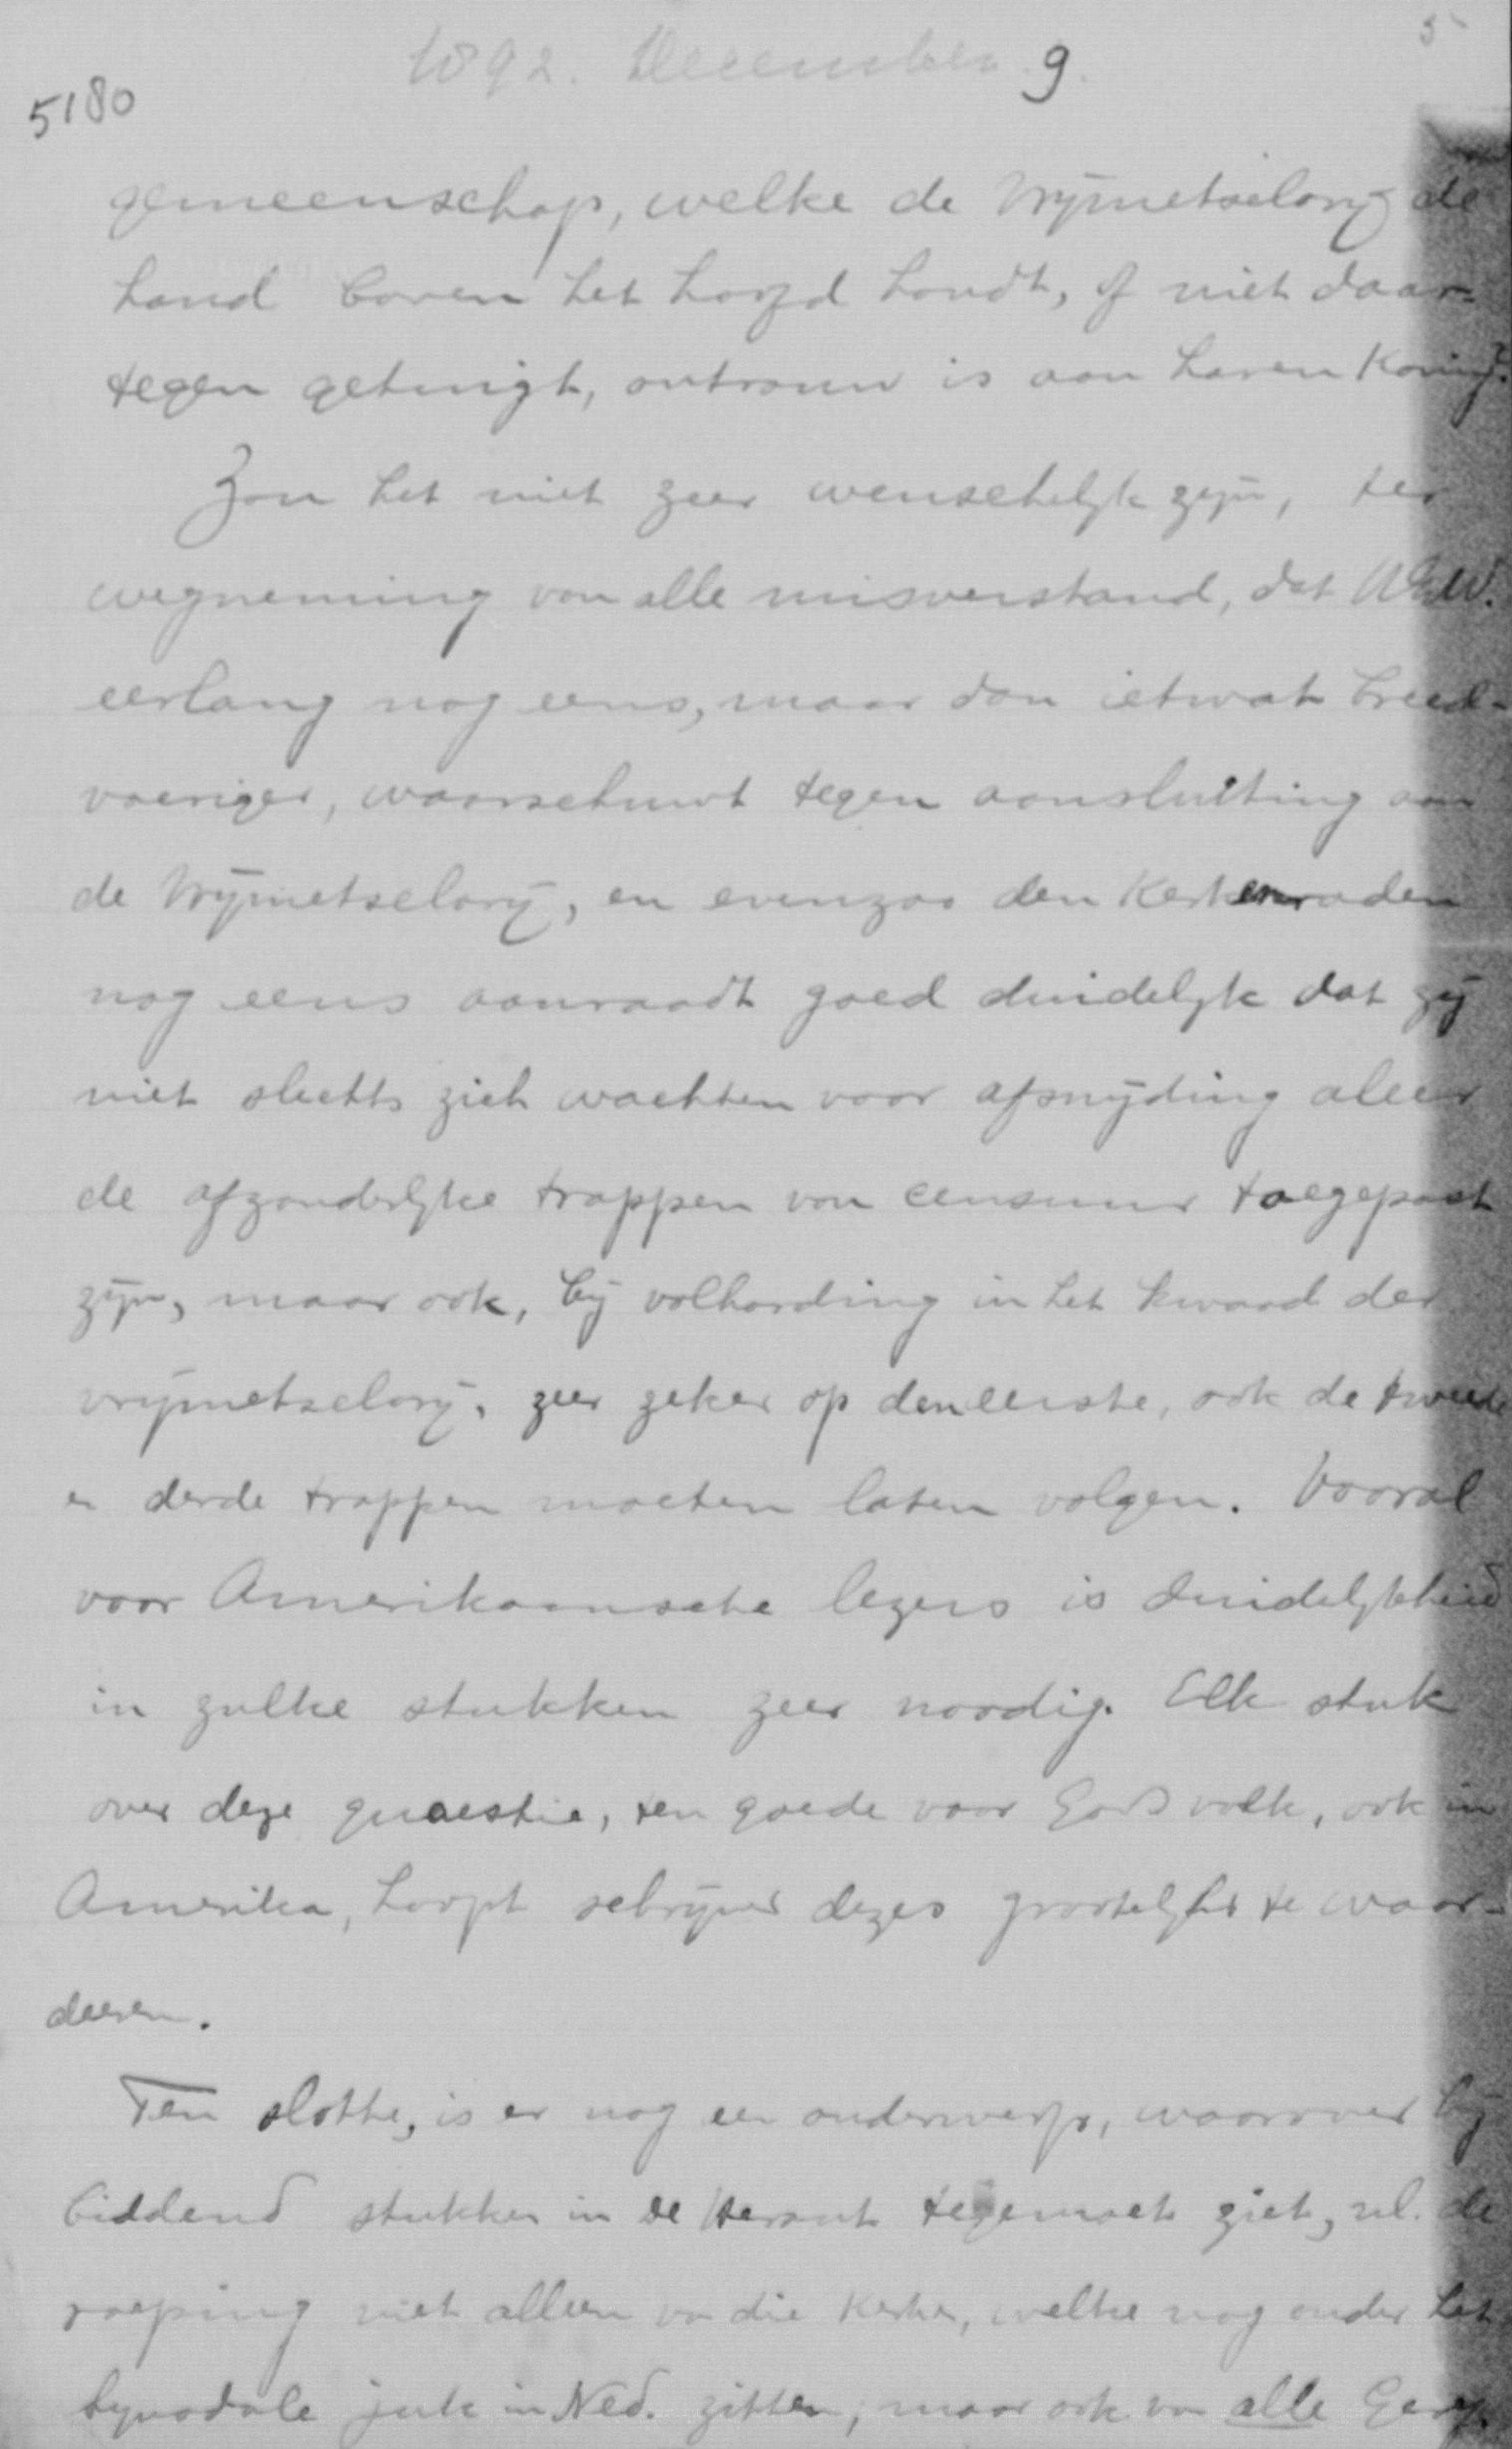 5
1892. December 9.
5180
gemeenschap, welke de Vrijmetselarij de
hand boven het hoofd houdt, of niet daar-
tegen getuigt, ontrouw is aan haren Koning?
Zou het niet zeer wenschelijk zijn, ter
wegneming van alle misverstand, dat
eerlang nog eens, maar dan ietwat breed-
voeriger, waarschuwt tegen aansluiting aan
de Vrijmetselarij, en evenzoo den Kerkenraden
nog eens aanraadt goed duidelijk dat zij
niet slechts zich wachten voor afsnijding aleer
de afzonderlijke trappen van censuur toegepast
zijn, maar ook, bij volharding in het kwaad der
vrijmetselarij, zeer zeker op den eerste, ook de tweede
en derde trappen moeten laten volgen. Vooral
voor Amerikaansche lezers is duidelijkheid
in zulke stukken zeer noodig. Elk stuk
over deze quaestie, ten goede voor Gods volk, ook in
Amerika, hoopt schrijver dezes grootelijks te waar-
deeren.
Ten slotte, is er nog een onderwerp, waarover hij
biddend stukken in De Heraut tegemoet ziet, nl. de
roeping niet alleen van die Kerken, welke nog onder het
synodale juk in Ned. zitten, maar ook van alle Geref.